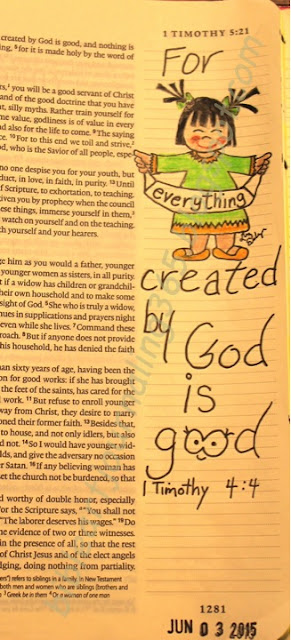 created by God is good, and nothing is
ing, 5 for it is made holy by the word of
you will be a good servant of Christ
and of the good doctrine that you have
t, silly myths. Rather train yourself for
me value, godliness is of value in every
d also for the life to come. 9 The saying
ce. 10 For to this end we toil and strive,
od, who is the Savior of all people, espe
no one despise you for your youth, but
duct, in love, in faith, in purity. 13 Until
f Scripture, to exhortation, to teaching.
iven you by prophecy when the council
ese things, immerse yourself in them,
watch on yourself and on the teaching.
h yourself and your hearers.
ge him as you would a father, younger
younger women as sisters, in all purity.
t if a widow has children or grandchil-
heir own household and to make some
sight of God. 5 She who is truly a widow,
nues in supplications and prayers night
even while she lives. 7 Command these
roach. 8 But if anyone does not provide
his household, he has denied the faith
an sixty years of age, having been the
on for good works: if she has brought
the feet of the saints, has cared for the
work. 11 But refuse to enroll younger
way from Christ, they desire to marry
oned their former faith. 13 Besides that,
to house, and not only idlers, but also
d not. 14 So I would have younger wid-
lds, and give the adversary no occasion
er Satan. 16 If any believing woman has
et the church not be burdened, so that
d worthy of double honor, especially
or the Scripture says, "You shall not
"The laborer deserves his wages." 19 Do
he evidence of two or three witnesses.
in the presence of all, so that the rest
of Christ Jesus and of the elect angels
dging, doing nothing from partiality.
ers") refers to siblings in a family. In New Testament
both men and women who are siblings (brothers and
3 Greek be in them 4 Or a woman of one man
1 TIMOTHY 5:21
For
everything
created
by God
is
good
1 Timothy 4:4
1281
JUN 03 2015